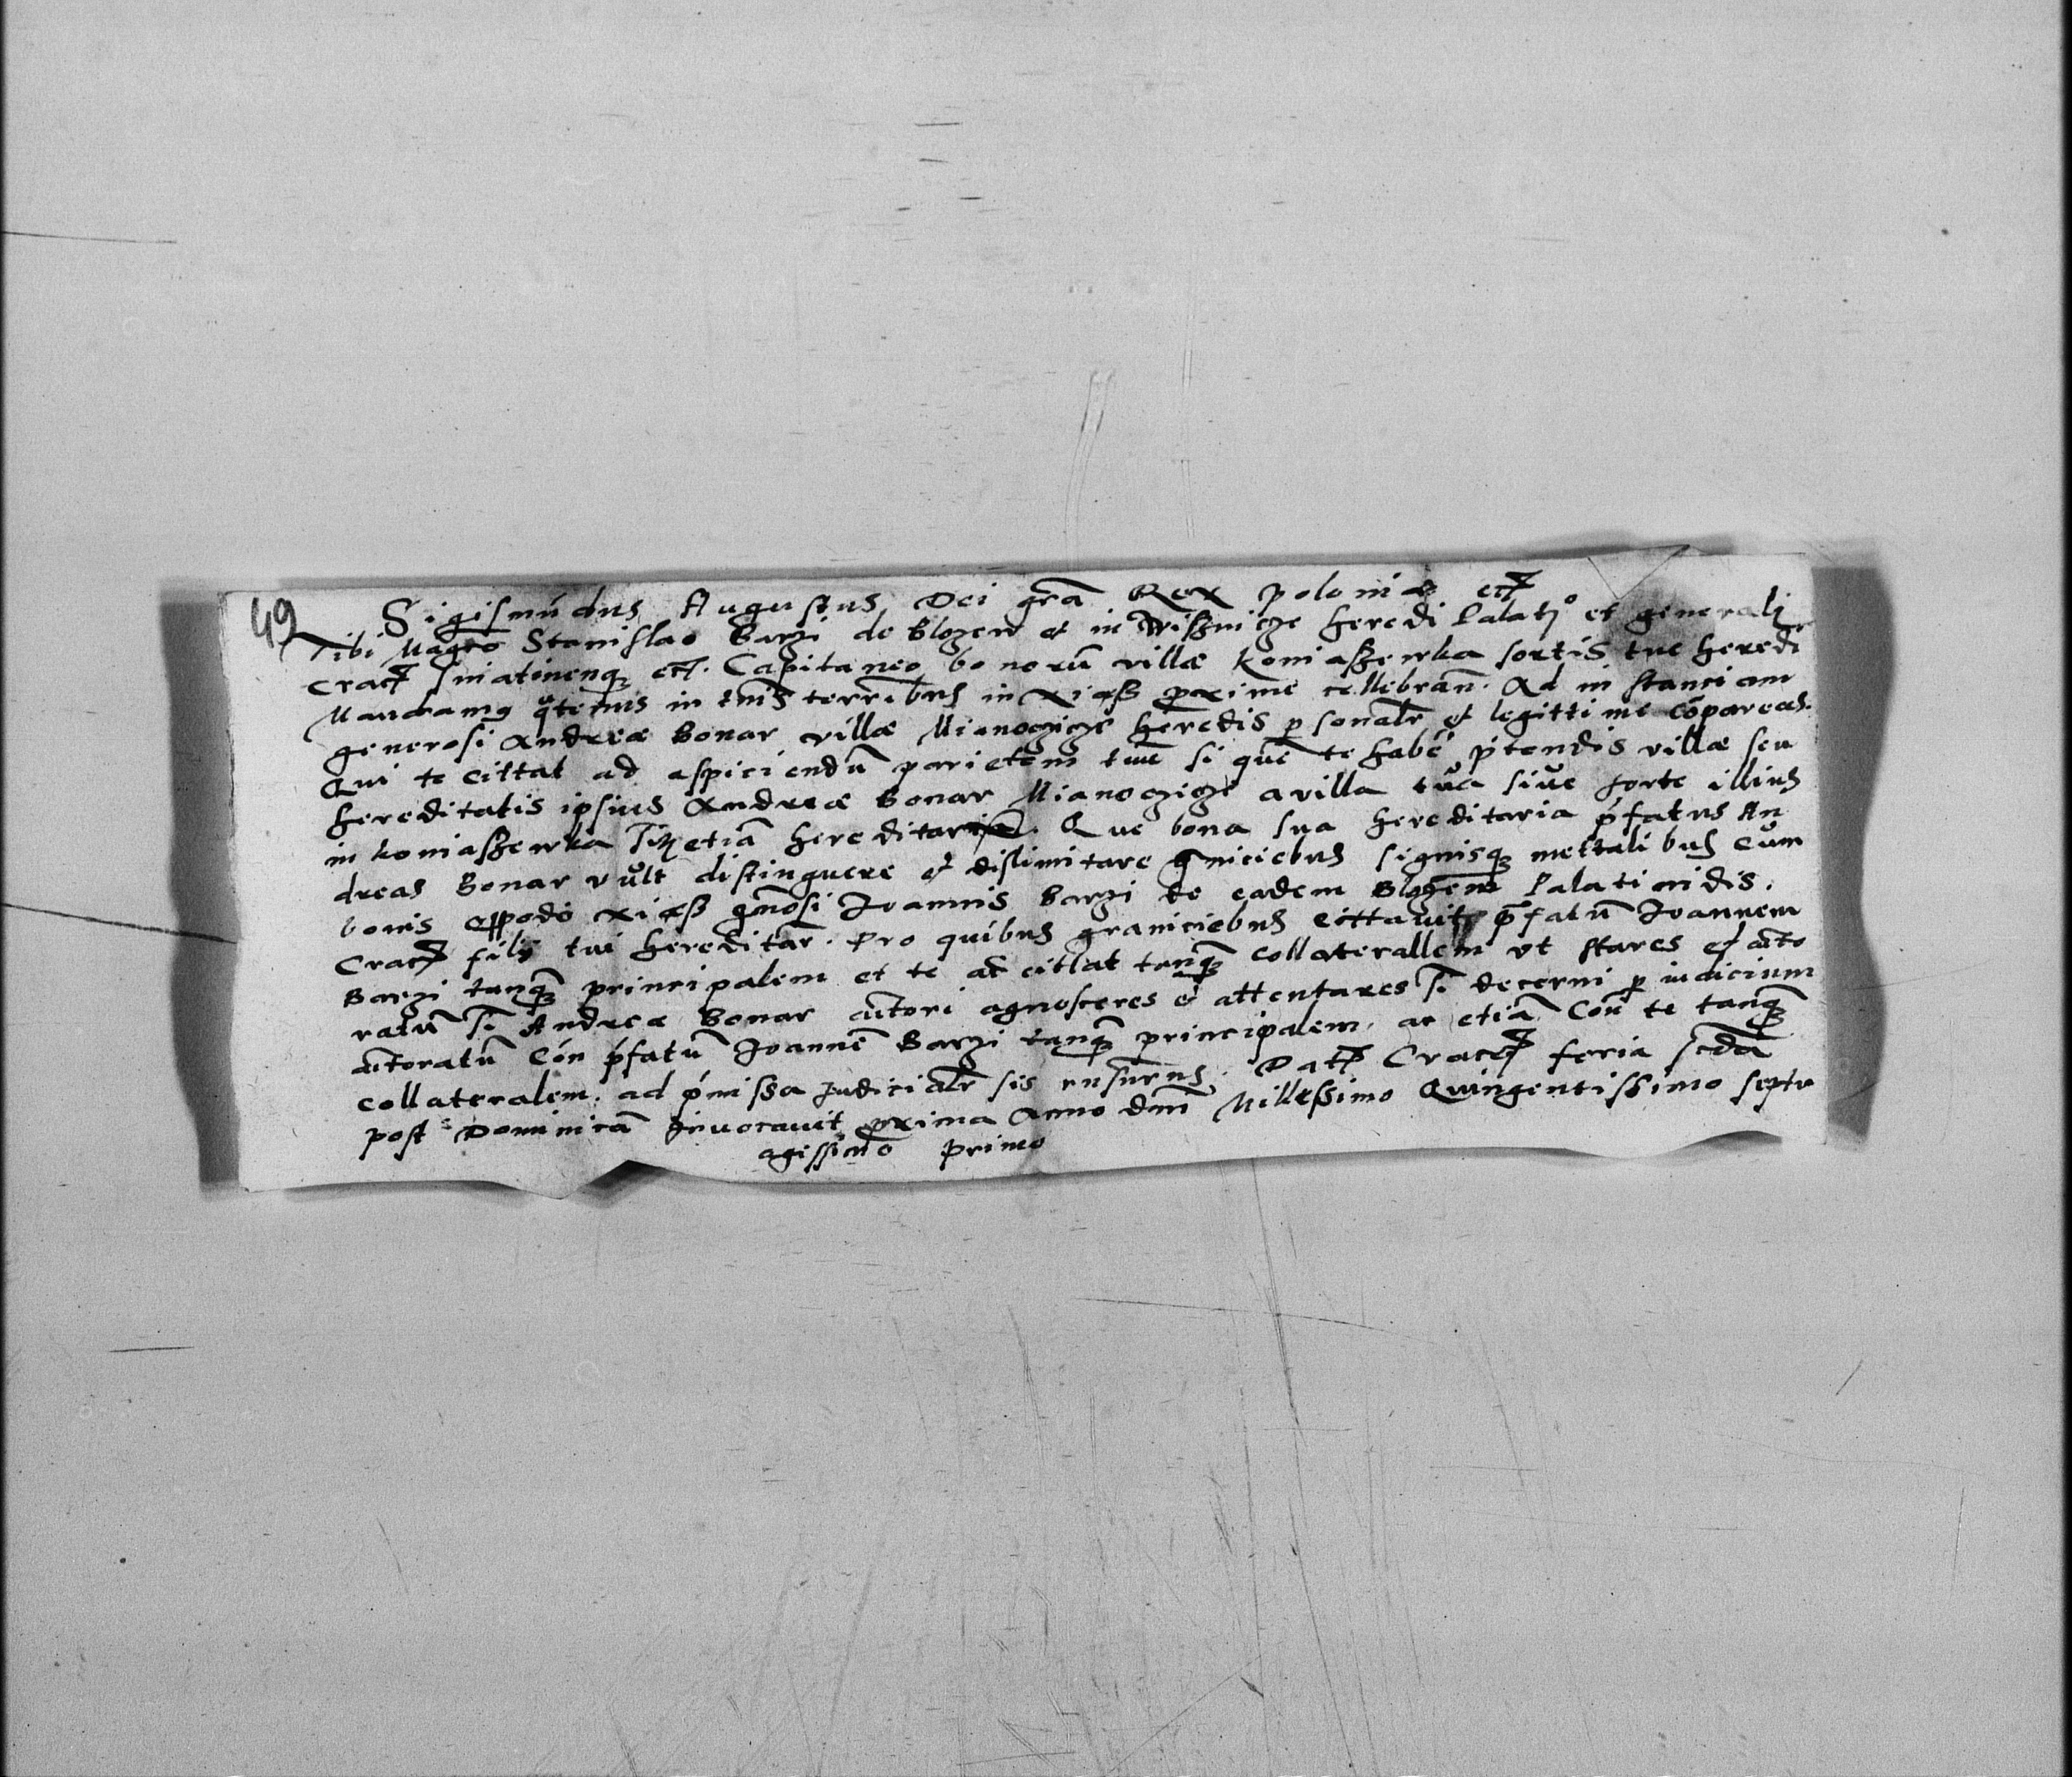 49
Sigismūdus Augustus Dei gr̄a Rex Poloniæ etc
Tibi Mag̅co Stanislao Barzi de Blozew et in Wisznicze heredi Palat̄o et generali
Crac̄ Sniatinenq̨ etc. Capitaneo bonorū villæ Koniaszewka sortis tue heredi
Mandamus q̄tenus in t̄mis terrribus in Xiąsz proxime cellebran̄. Ad instanciam
generosi Andreæ Bonar villæ Mianoczicze heredis p̱sonalr̄ et legittime cōpareas.
Qui te cittat ad aspiciendū parietem tuū si quē te habē p̄tendis villæ seu
hereditatis ipsius Andreæ Bonar Mianoczicze a villa tua siue sorte illius
in Koniaszewka etiā hereditaria. Que bona sua hereditaria p̄fatus An
dreas Bonar vult distinguere et dislimitare gniciebus signisq̨ mettalibus cum
bonis oppodō Xiąsz gn̄osi Joannis Barzi de eadem Blozew Palatinidis.
Crac̄ filÿ tui hereditar̄. Pro quibus graniciebus cittauit p̄fatū Joannem
Barzi tanq̨ principalem et te ac cittat tanq̨ collaterallem vt stares et acto
ratū Andreæ Bonar actori agnosceres et attentares decerni p̱ iudicium
actoratū Cōn p̄fatū Joannē Barzi tanq̨ principalem. ac etiā Cōn te tanq̨
collateralem. ad p̄missa Judicialr̄ sis rn̄surus. Dat̄ Crac̄ feria scda
post Dominicā Inuocauit proxima Anno dn̄i Millessimo Quingentissimo septu
agissimo primo